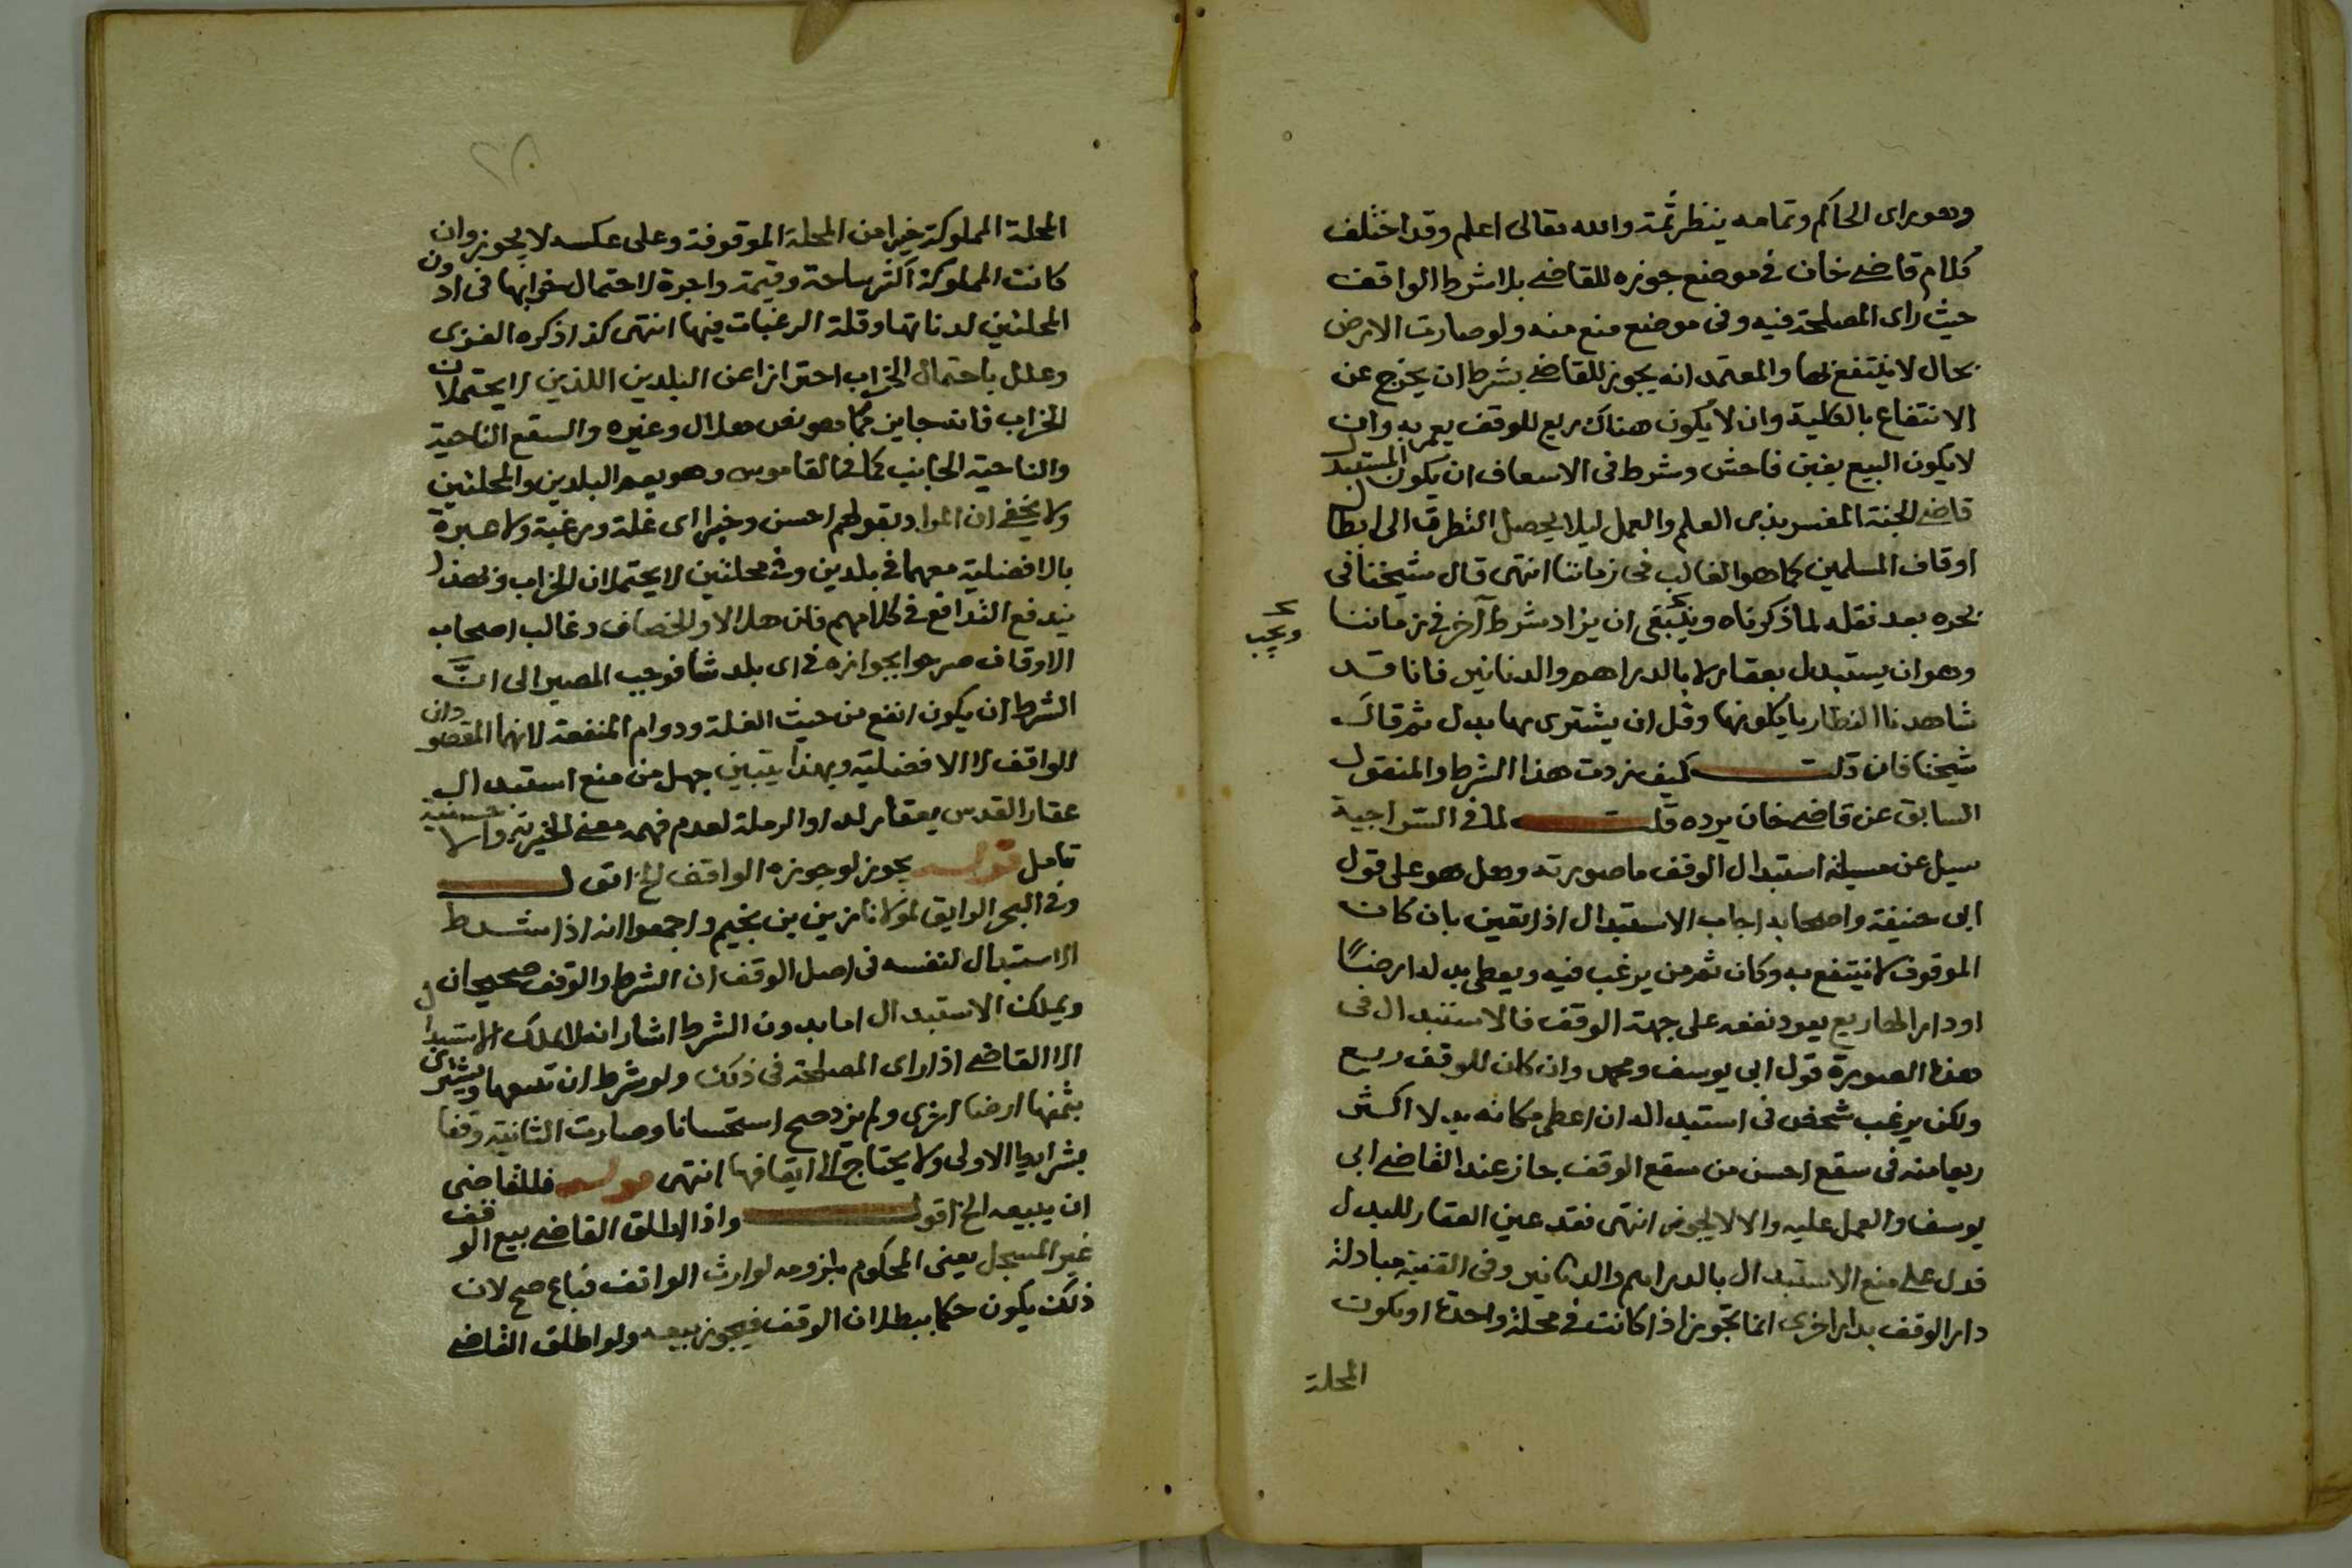 وهو براى الحاكم وتمامه ينظر ثمة والله تعالى اعلم وقد اختلف
كلام قاضى خان فى موضع جوزه للقاضى بلا شرط الواقف
حيث راى المصلحة فيه وفى موضع منع منه ولو صارت الارض
بحال لا ينتفع بها والمعتمد انه يجوز للقاضى بشرط ان يخرج عن
الانتفاع بالكلية وان لا يكون هناك ريع للوقف يعمر به وان
لا يكون البيع بغبن فاحش وشرط فى الاسعاف ان يكون المستبدل
قاضى الجنة المفسر بذى العلم والعمل ليلا يحصل التطرق الى ابطال
اوقاف المسلمين كما هو الغالب فى زماننا انتهى قال شيخنا فى
بحره بعد نقله لما ذكرناه وينبغى ان يزاد شرط آخر فى زماننا
ويجب
وهو ان يستبدل بعقار لا بالدراهم والدنانير فانا قد
شاهدنا النظار ياكلونها وقل ان يشترى بها بدل ثم قال
شيخنا فان قلت كيف زدت هذا الشرط والمنقول
السابق عن قاضى خان يرده قلت لما فى السراجية
سيل عن مسيلة استبدال الوقف ما صورته وهل هو على قول
ابى حنيفة واصحابه اجاب الاستبدال اذا يقين بان كان
الموقوف لا ينتفع به وكان ثم من يرغب فيه ويعطى بدله ارضًا
او دارا لها ريع يعود نفعه على جهة الوقف فالاستبدال فى
هذه الصورة قول ابى يوسف ومحمد وان كان للوقف ريع
ولكن يرغب شخص فى استبداله ان اعطى مكانه بدلا اكثر
ريعا منه فى سقع احسن من سقع الوقف جاز عند القاضى ابى
يوسف والعمل عليه والا لا يجوز انتهى فقد عين العقار للبدل
فدل على منع الاستبدال بالدراهم والدنانير وفى القنية مبادلة
دار الوقف بدار اخرى انما تجوز اذا كانت فى محلة واحدة او تكون
المحلة
المحلة المملوكة خيرا من المحلة الموقوفة وعلى عكسه لا يجوز وان
كانت المملوكة اكثر مساحة وقيمة واجرة لاحتمال خرابها فى ادون
المحلتين لدناتها وقلة الرغبات فيها انتهى كذا ذكره الغزى
وعلل باحتمال الخراب احترازا عن البلدين اللذين لا يحتملان
الخراب فانه جايز كما هو نص هلال وغيره والسقع الناحية
والناحية الجانب كما فى القاموس وهو يعم البلدين والمحلتين
ولا يخفى ان المراد بقولهم احسن وخيرا اى غلة ورغبة ولا عبرة
بالافضلية معهما فى بلدين وفى محلتين لا يحتملان الخراب وبهذا
يندفع التدافع فى كلامهم فان هلالا والخصاف وغالب اصحاب
الاوقاف صرحوا بجوازه فى اى بلد شا فوجب المصير الى انَّ
الشرط ان يكون انفع من حيث الغلة ودوام المنفعة لانهما المقصودان
الواقف لا الافضلية وبهذا يتبين جهل من منع استبدال
عقار القدس بعقار لد او الرملة لعدم فهمه معنى الخيرية والاحسنية
تامل قوله يجوز لو جوزه الواقف الخ اقول
وفى البحر الرايق لمولانا زين بن نجيم واجمعوا انه اذا شرط
الاستبدال لنفسه فى اصل الوقف ان الشرط والوقف صحيحان
ويملك الاستبدال اما بدون الشرط اشار انه لا يملك الاستبدال
الا القاضى اذا راى المصلحة فى ذلك ولو شرط ان تبيعها ويشترى
بثمنها ارضا اخرى ولم يزد صح استحسانا وصارت الثانية وقفا
بشرايط الاولى ولا يحتاج الى ايقافها انتهى قوله فللقاضى
ان يبيعه الخ اقول واذا اطلق القاضى بيع الوقف
غير المسجل يعنى المحكوم بلزومه لوارث الواقف فباع صح لان
ذلك يكون حكما ببطلان الوقف فيجوز بيعه ولو اطلق القاضى